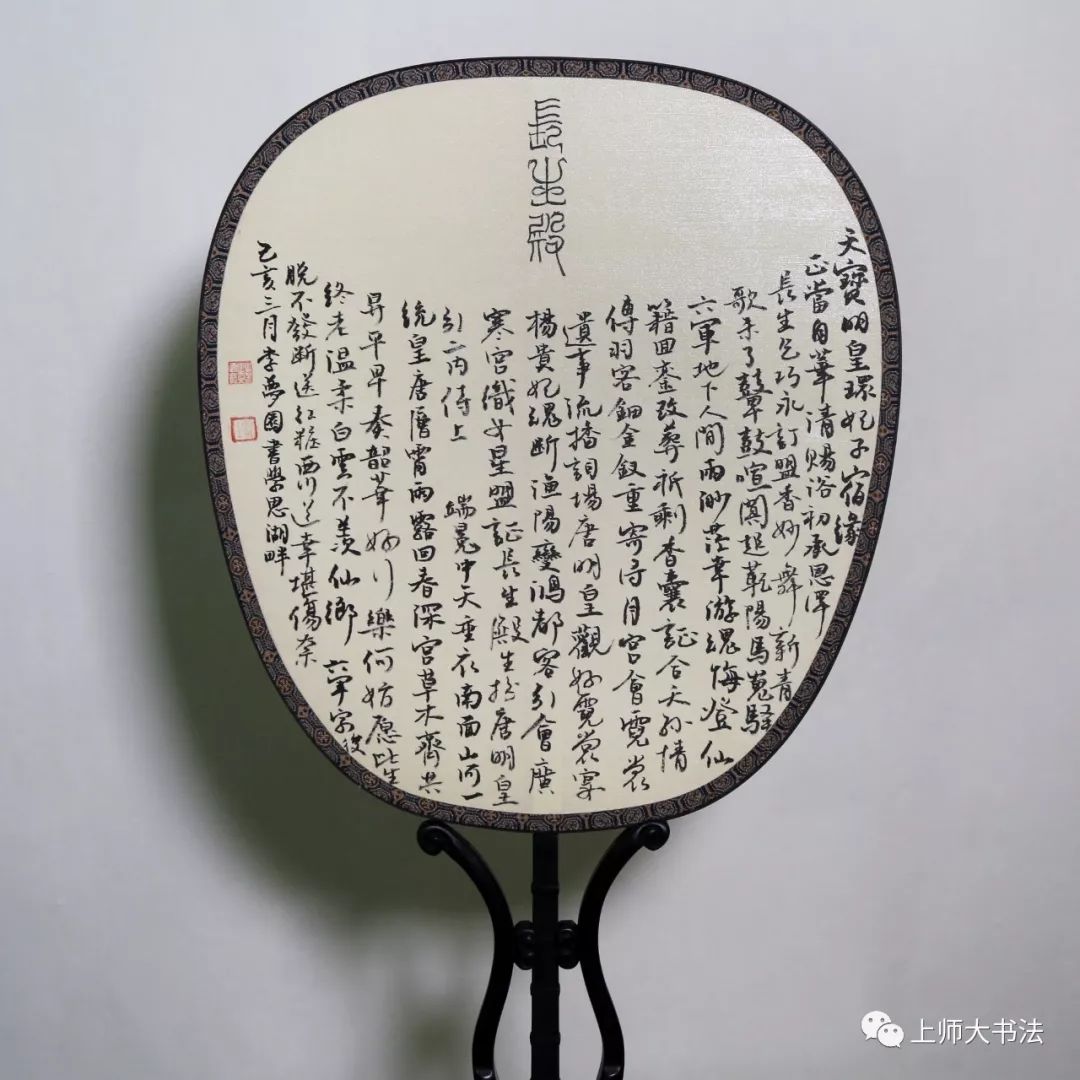 長生殿
天寶明皇環妃子宿緣
正當自華清賜浴初承恩澤
長生乞巧永訂盟香妙舞新青
歌未了鼙鼓喧闐起陽馬嵬驛
六軍地下人間兩渺茫幸游魂悔登仙
籍回鑾改葬祇剩香囊証合天孫情
傳羽客鈿金釵重寄月宮會霓裳
遺事流播詞場唐明皇觀好霓裳宴
楊貴妃魂斷漁陽變鴻都客引會廣
寒宮織女星盟証長生殿生扮唐明皇
引二內侍上 端冕中天垂衣南面山河一
統皇唐層霄雨露回春深宮草木齊共
昇平早奏韶華好行樂何妨愿此生
終老溫柔白雲不羨仙鄉 六軍字後
脫不發斷送紅粧西川巡幸堪傷奈
己亥三月李夢園書學思湖畔
上师大书法